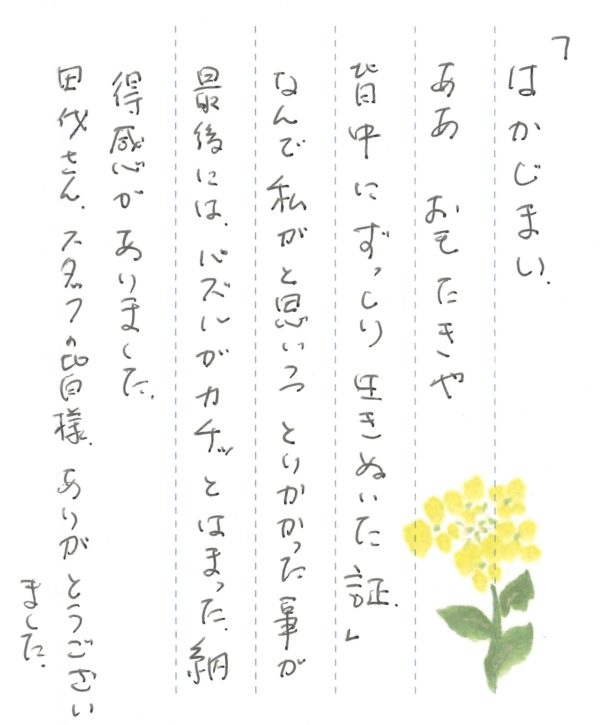 「はかじまい.
ああ おもたきや
背中にずっしり 生きぬいた証.」
なんで私がと思いつつ とりかかった事が
最後には、パズルがカチッとはまった、納
得感が ありました.
田伐さん、スタッフの皆様、ありがとうござい
ました.